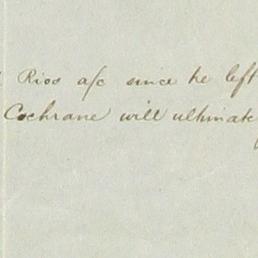 Rios a/c since he left
Cochrane will ultimate